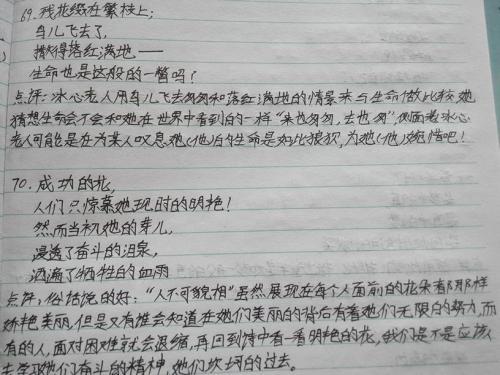 69. 残花缀在繁枝上；
鸟儿飞去了，
撒得落红满地——
生命也是这般的一瞥吗？
点评：冰心老人用鸟儿飞去匆匆和落红满地的情景来与生命做比较，她
猜想生命会不会和她在世界中看到的一样“来也匆匆，去也匆”，侧面老冰心
老人可能是在为某人叹息她（他）的生命是如此狼狈，为她（他）惋惜吧！
70. 成功的花，
人们只惊慕她现时的明艳！
然而当初她的芽儿，
浸透了奋斗的泪泉，
洒遍了牺牲的血雨
点评：俗话说的好：“人不可貌相”虽然展现在每个人面前的花朵有那那样
娇艳美丽，但是又有谁会知道在她们美丽的背后有着她们无限的努力，而
有的人，面对困难就会退缩，再回到诗中看一看明艳的花，我们是不是应该
去学习她们奋斗的精神，她们坎坷的过去。